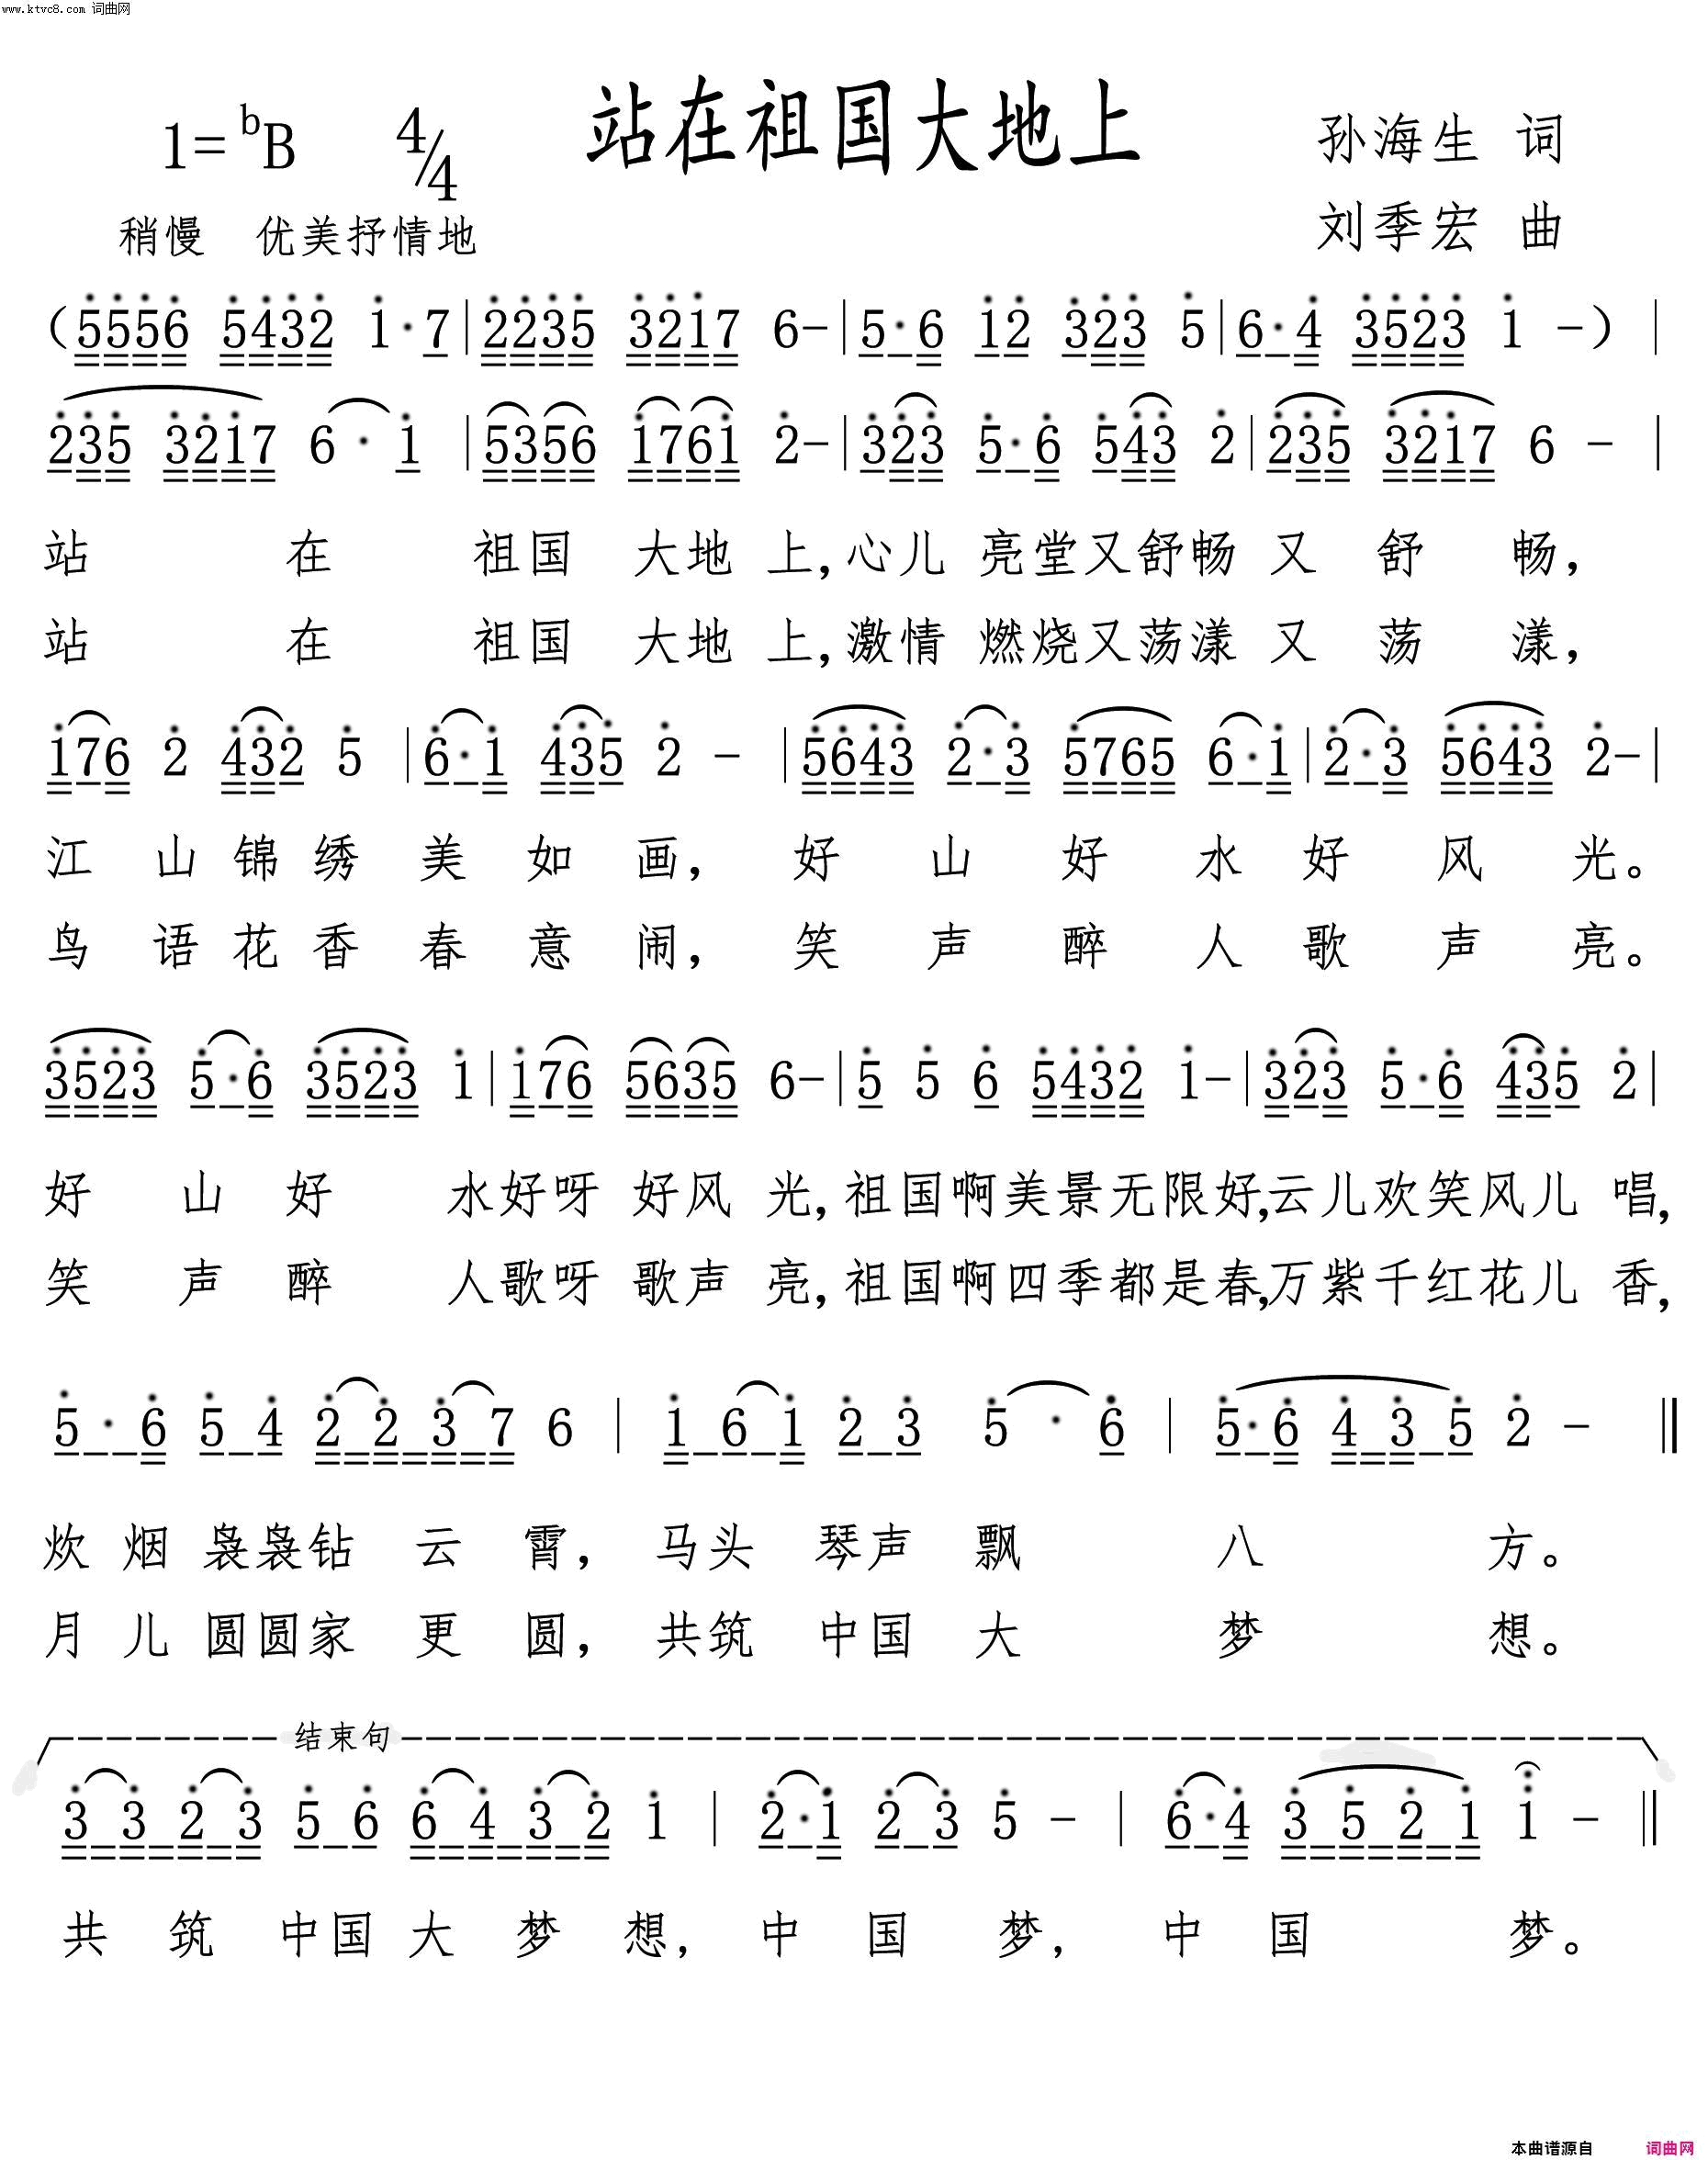 www.ktvc8.com 词曲网
站在祖国大地上
1=ᵇB 4/4
孙海生 词
稍慢 优美抒情地
刘季宏 曲
(5556 5432 1·7|2235 3217 6-|5·6 12 323 5|6·4 3523 1 -)|
235 3217 6·1|5356 1761 2-|323 5·6 543 2|235 3217 6 -|
站 在 祖国 大地 上,心儿 亮堂又舒畅 又 舒 畅,
站 在 祖国 大地 上,激情 燃烧又荡漾 又 荡 漾,
176 2 432 5|6·1 435 2 -|5643 2·3 5765 6·1|2·3 5643 2-|
江 山 锦 绣 美 如 画, 好 山 好 水 好 风 光。
鸟 语 花 香 春 意 闹, 笑 声 醉 人 歌 声 亮。
3523 5·6 3523 1|176 5635 6-|5 5 6 5432 1-|323 5·6 435 2|
好 山 好 水好呀 好风 光,祖国啊美景无限好,云儿欢笑风儿 唱,
笑 声 醉 人歌呀 歌声 亮,祖国啊四季都是春,万紫千红花儿 香,
5·6 5 4 2 2 3 7 6|1 6 1 2 3 5·6|5·6 4 3 5 2 -‖
炊 烟 袅袅钻 云 霄, 马头 琴声 飘 八 方。
月 儿 圆圆家 更 圆, 共筑 中国 大 梦 想。
结束句
3 3 2 3 5 6 6 4 3 2 1|2·1 2 3 5 -|6·4 3 5 2 1 1 -‖
共 筑 中国 大 梦 想, 中 国 梦, 中 国 梦。
本曲谱源自 词曲网